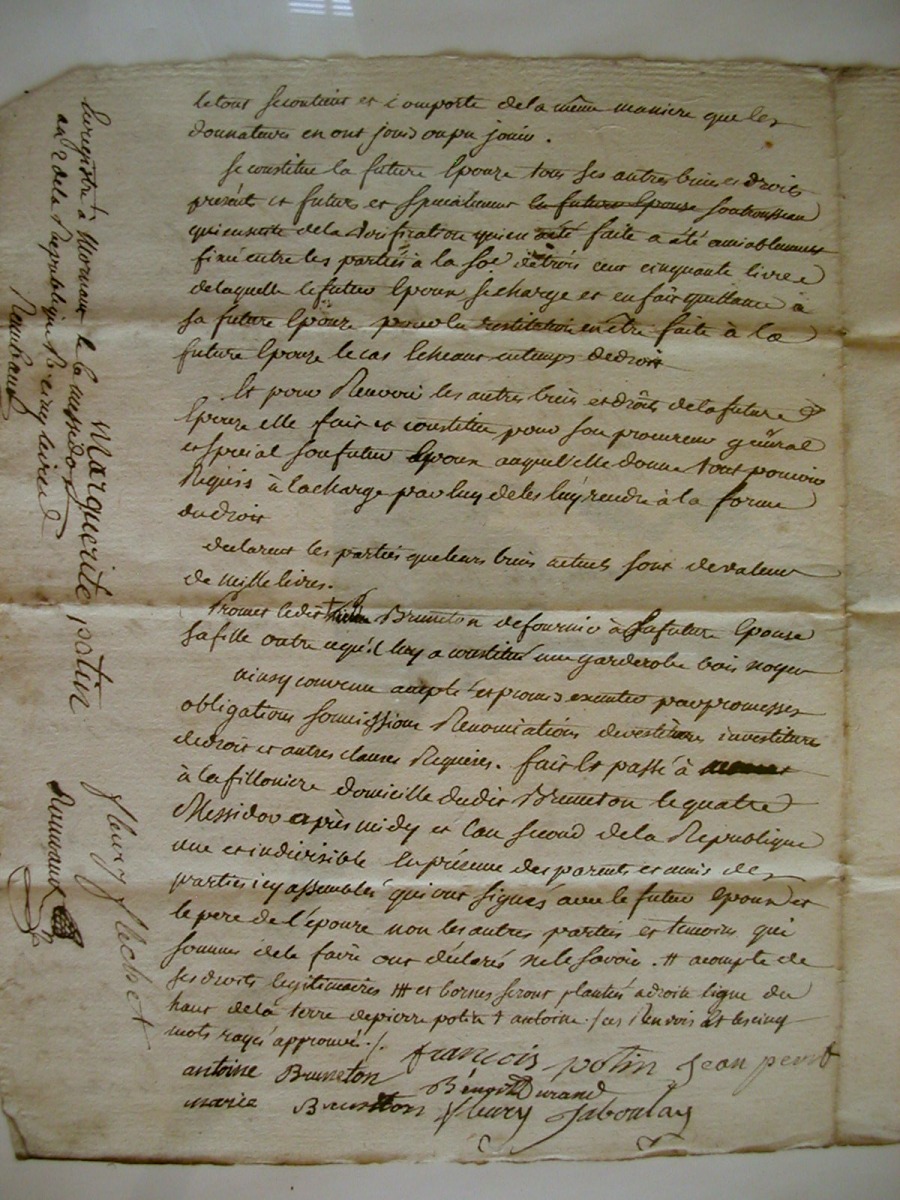 le tout se contient et comporte de la même maniere que les
donnateurs en ont joui ou pu jouir.
se constitue la future Epouze tous ses autres biens et droits
présents et futurs et spécialement la future Epouse son trousseau
qui ensuite de la verification qui en a été faite a été amiablement
fixé entre les parties à la soe de trois cent cinquante livres
de laquelle le futur Epoux se charge et en fait quittance à
sa future Epouze pour la restitution en être faite à la
future Epouze le cas Echeant en temps de droit
Et pour Recevoir les autres biens et droits de la future
Epouze elle fait et constitue pour son procureur général
et special son futur Epoux auquel elle donne tout pouvoir
Requis à la charge par luy de les luy rendre à la forme
du droit
declarent les parties que leurs biens actuels sont de valeur
de mille livres.
Promet ledit Bruneton de fournir à sa future Epouse
sa fille outre ce qu'il luy a constitué une garderobe bois noyer
ainsy convenu accepté et promis executer par promesses
obligations soumissions Renonciations devestiture investiture
de droit et autres clauses Requises. fait Et passé à
à la filloniere domicille dudit Bruneton le quatre
Messidor après midy et l'an second de la Republique
une et indivisible En présence des parents et amis des
parties icy assemblés qui ont signés avec le futur epoux et
le pere de l'épouze non les autres parties et temoins qui
sommés de le faire ont déclarés ne le savoir. # acompte de
ses droits legitimaires ## et bornes seront plantés a droite ligne du
haut de la terre de pierre potin & antoine / ces Renvois Et les cinq
mots rayés approuvé ./.
françois potin Jean perret
antoine Bruneton Benoit Durand
marie Bruneton fleury Jaboulay
Marguerite potin fleury flechet
Enregistré à Mornant le messidor
an 2 de la Republique R. cinq livres